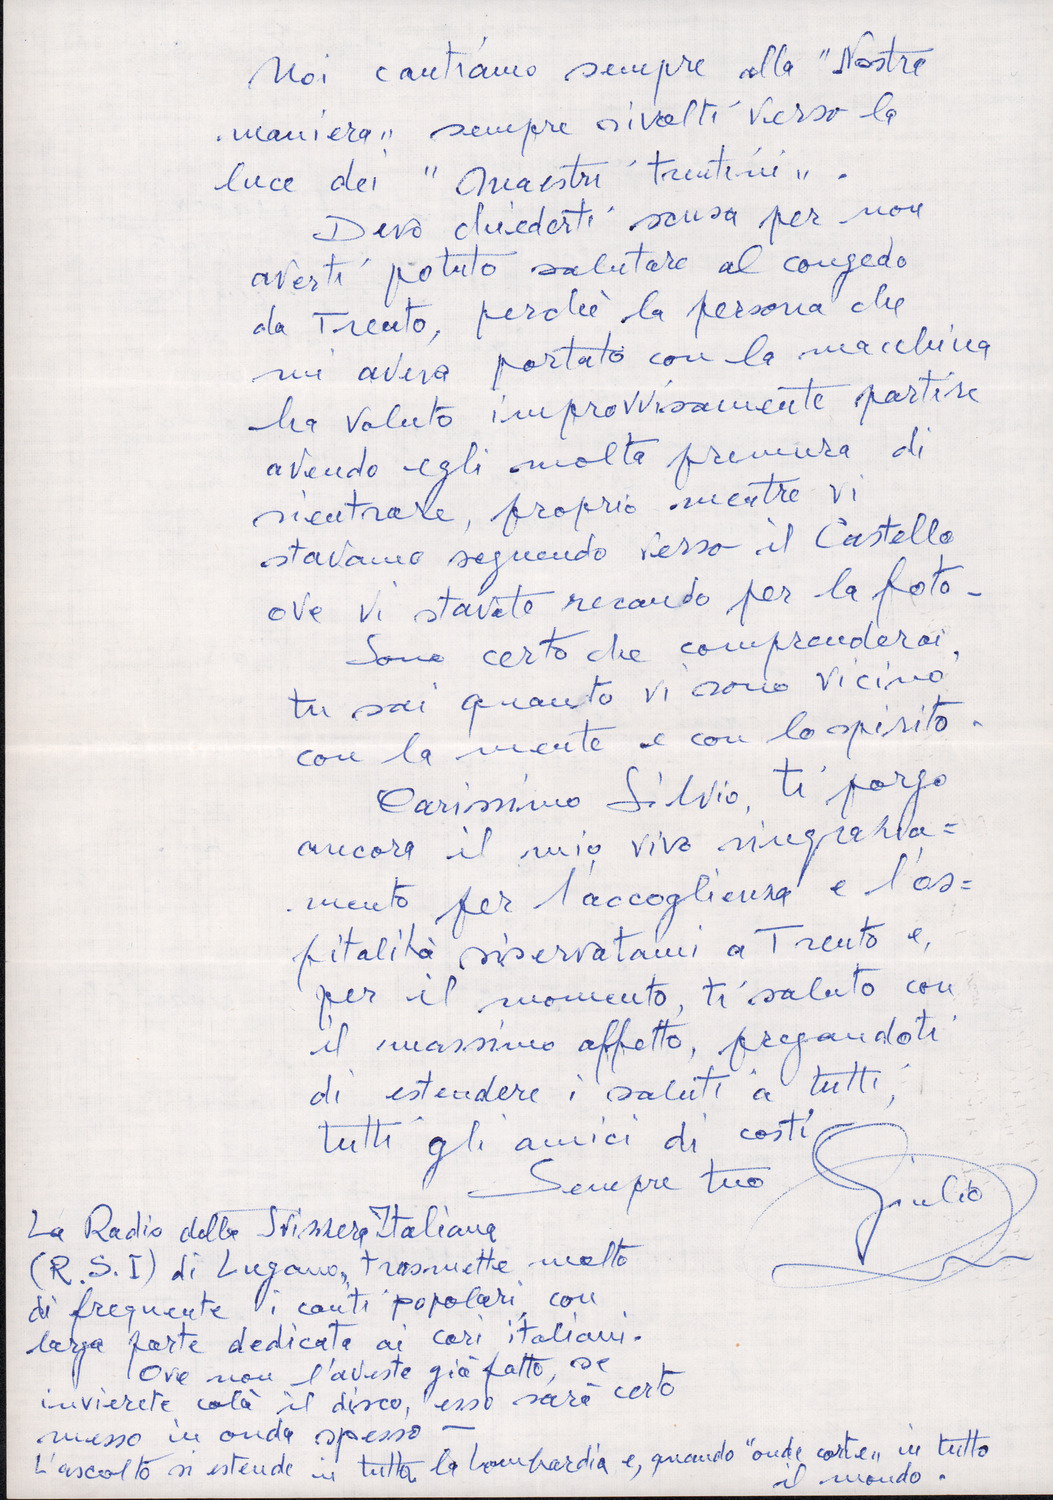 Noi cantiamo sempre alla "Nostra
maniera" sempre rivolti verso la
luce dei "Maestri trentini".
Devo chiederti scusa per non
averti potuto salutare al congedo
da Trento, perchè la persona che
mi aveva portato con la macchina
ha voluto improvvisamente partire
avendo egli molta premura di
rientrare, proprio mentre vi
stavamo seguendo verso il Castello
ove vi stavate recando per la foto -
Sono certo che comprenderai,
tu sai quanto vi sono vicino
con la mente e con lo spirito.
Carissimo Silvio, ti porgo
ancora il mio vivo ringrazia=
mento per l'accoglienza e l'os=
pitalità riservatami a Trento e,
per il momento, ti saluto con
il massimo affetto, pregandoti
di estendere i saluti a tutti,
tutti gli amici di costì
Sempre tuo Giulio
La Radio della Svizzera Italiana
(R.S.I) di Lugano, trasmette molto
di frequente i canti popolari, con
larga parte dedicata ai cori italiani.
Ove non l'aveste già fatto, se
invierete colà il disco, esso sarà certo
messo in onda spesso -
L'ascolto si estende in tutta la Lombardia e, quando "onde corte" in tutto
il mondo.